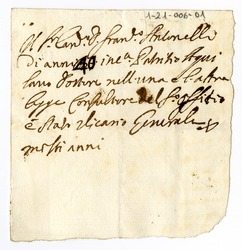 1-21-006-01
Il Sr Cand. D. Fran.o Antonelli
di anni 40 in c.a Patritio Aqui
lano Dottore nell'una e l'altra
legge Consultore del S. Offitio
è stato Vicario Generale
molti anni